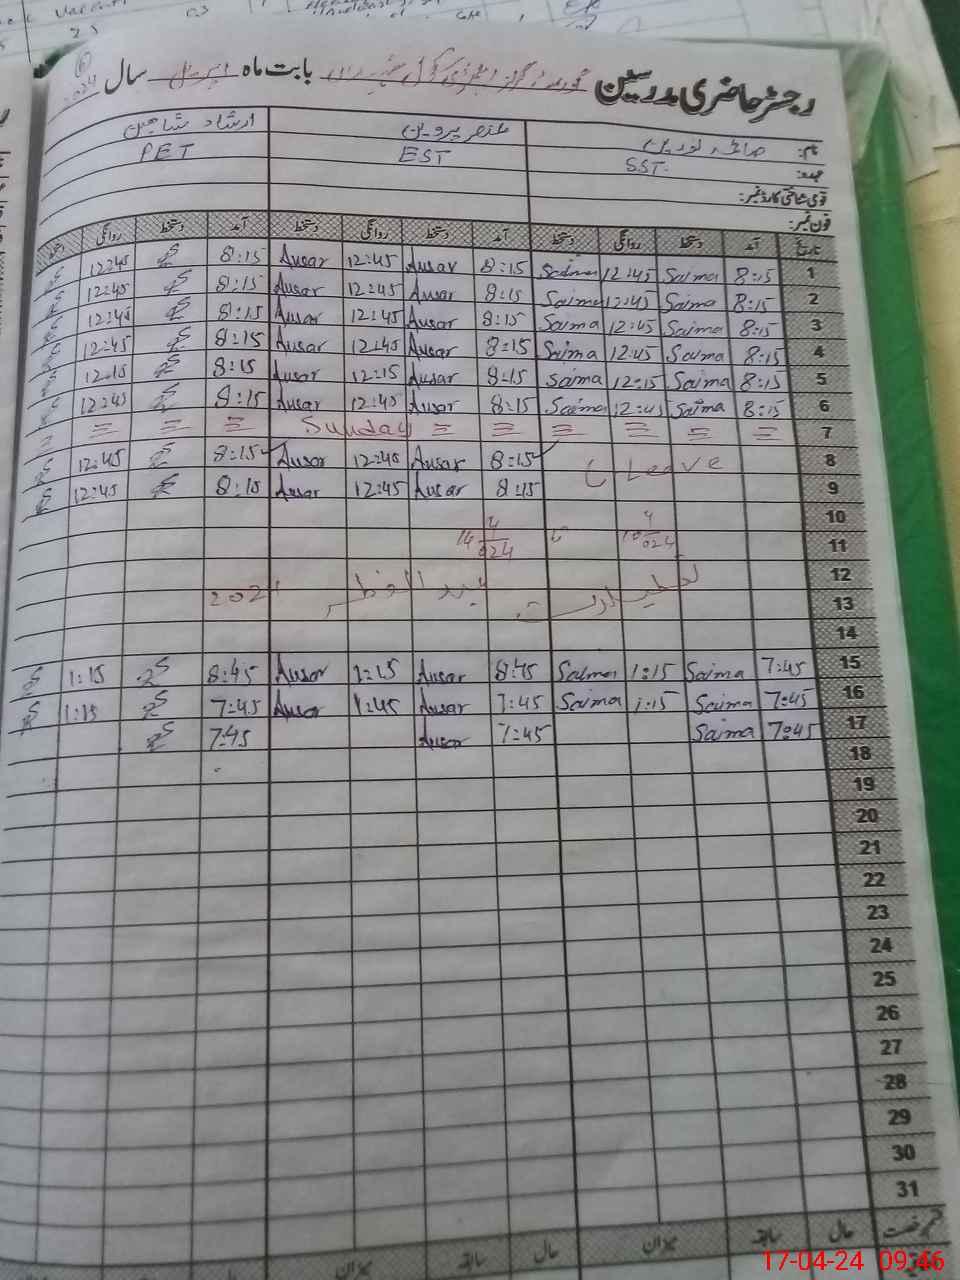 رجسٹر حاضری مدرسین گورنمنٹ گرلز بابت ماہ اپریل سال 2024
6
نام: صائمہ نورین پروین ارشاد شاہین
عہدہ: SST. EST PET
قومی شناختی کارڈ نمبر:
فون نمبر:
تاریخ آمد دستخط روانگی دستخط آمد دستخط روانگی دستخط آمد دستخط روانگی دستخط
1 8:15 Saima 12:45 Saima 8:15 Ausar 12:45 Ausar 8:15 12:45
2 8:15 Saima 12:45 Saima 8:15 Ausar 12:45 Ausar 8:15 12:45
3 8:15 Saima 12:45 Saima 8:15 Ausar 12:45 Ausar 8:15 12:45
4 8:15 Saima 12:45 Saima 8:15 Ausar 12:45 Ausar 8:15 12:45
5 8:15 Saima 12:15 Saima 8:15 Ausar 12:15 Ausar 8:15 12:15
6 8:15 Saima 12:45 Saima 8:15 Ausar 12:45 Ausar 8:15 12:45
7 = = = = = = Sunday = = =
8 C Leave 8:15 Ausar 12:45 Ausar 8:15 12:45
9 8:15 Ausar 12:45 Ausar 8:15 12:45
10
11 10/4/024 تا 14/4/024
12
13 تعطیلات عید الفطر 2024
14
15 7:45 Saima 1:15 Saima 8:45 Ausar 1:15 Ausar 8:45 1:15
16 7:45 Saima 1:15 Saima 7:45 Ausar 1:45 Ausar 7:45 1:15
17 7:45 Saima 7:45 Ausar 7:45
18
19
20
21
22
23
24
25
26
27
28
29
30
31
قسم رخصت حال سابقہ میزان حال سابقہ میزان
17-04-24 09:46